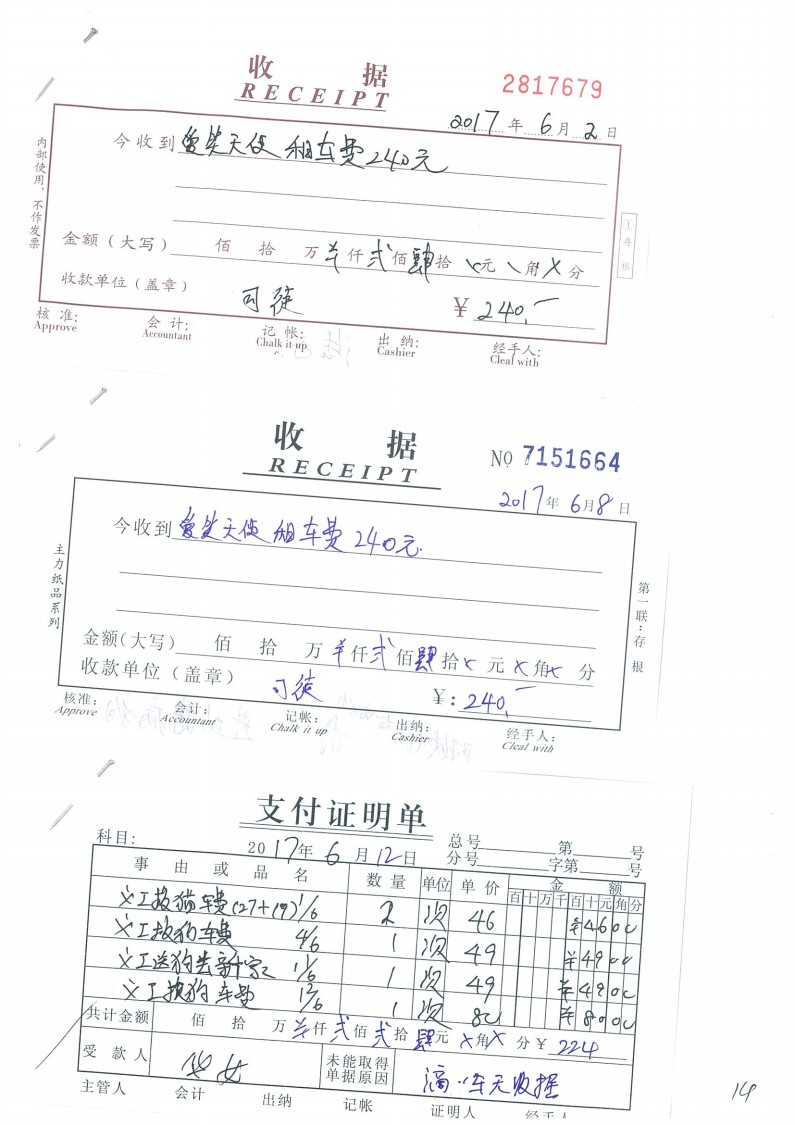 收 据
RECEIPT
2817679
2017年6月2日
内部使用，不作发票
今收到 爱笑天使 租车费240元
金额（大写） 佰 拾 万 ¥仟 弍佰 肆拾 元 角 X分
①存根
收款单位（盖章） 司徒 ¥ 240.一
核 准: 会 计: 记 帐: 出 纳: 经手人:
Approve Accountant Chalk it up Cashier Cleal with
收 据
RECEIPT
NO 7151664
2017年6月8日
主力纸品系列
今收到 爱笑天使 租车费240元.
第一联：存根
金额(大写) 佰 拾 万 ¥仟 弍佰 肆拾 x元 x角 x分
收款单位（盖章） 司徒 ¥: 240.一
核准: 会计: 记帐: 出纳: 经手人:
Approve Accountant Chalk it up Cashier Cleal with
支付证明单
科目: 2017年6月12日 总号 第 号
分号 字第 号
事 由 或 品 名 数量 单位 单价 金 额
百十万千百十元角分
义工救猫车费(27+19) 1/6 2 次 46 ¥4600
义工救狗车费 4/6 1 次 49 ¥4900
义工送狗去新家 1 次 49 ¥4900
义工 狗车费 1 次 80 ¥8000
共计金额 佰 拾 万 ¥仟 弍佰 弍拾 肆元 x角 x分 ¥ 224
受款人 未能取得单据原因 滴 车无收据
主管人 会计 出纳 记帐 证明人 经手人
14